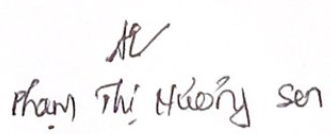 Phạm Thị Hường Sen